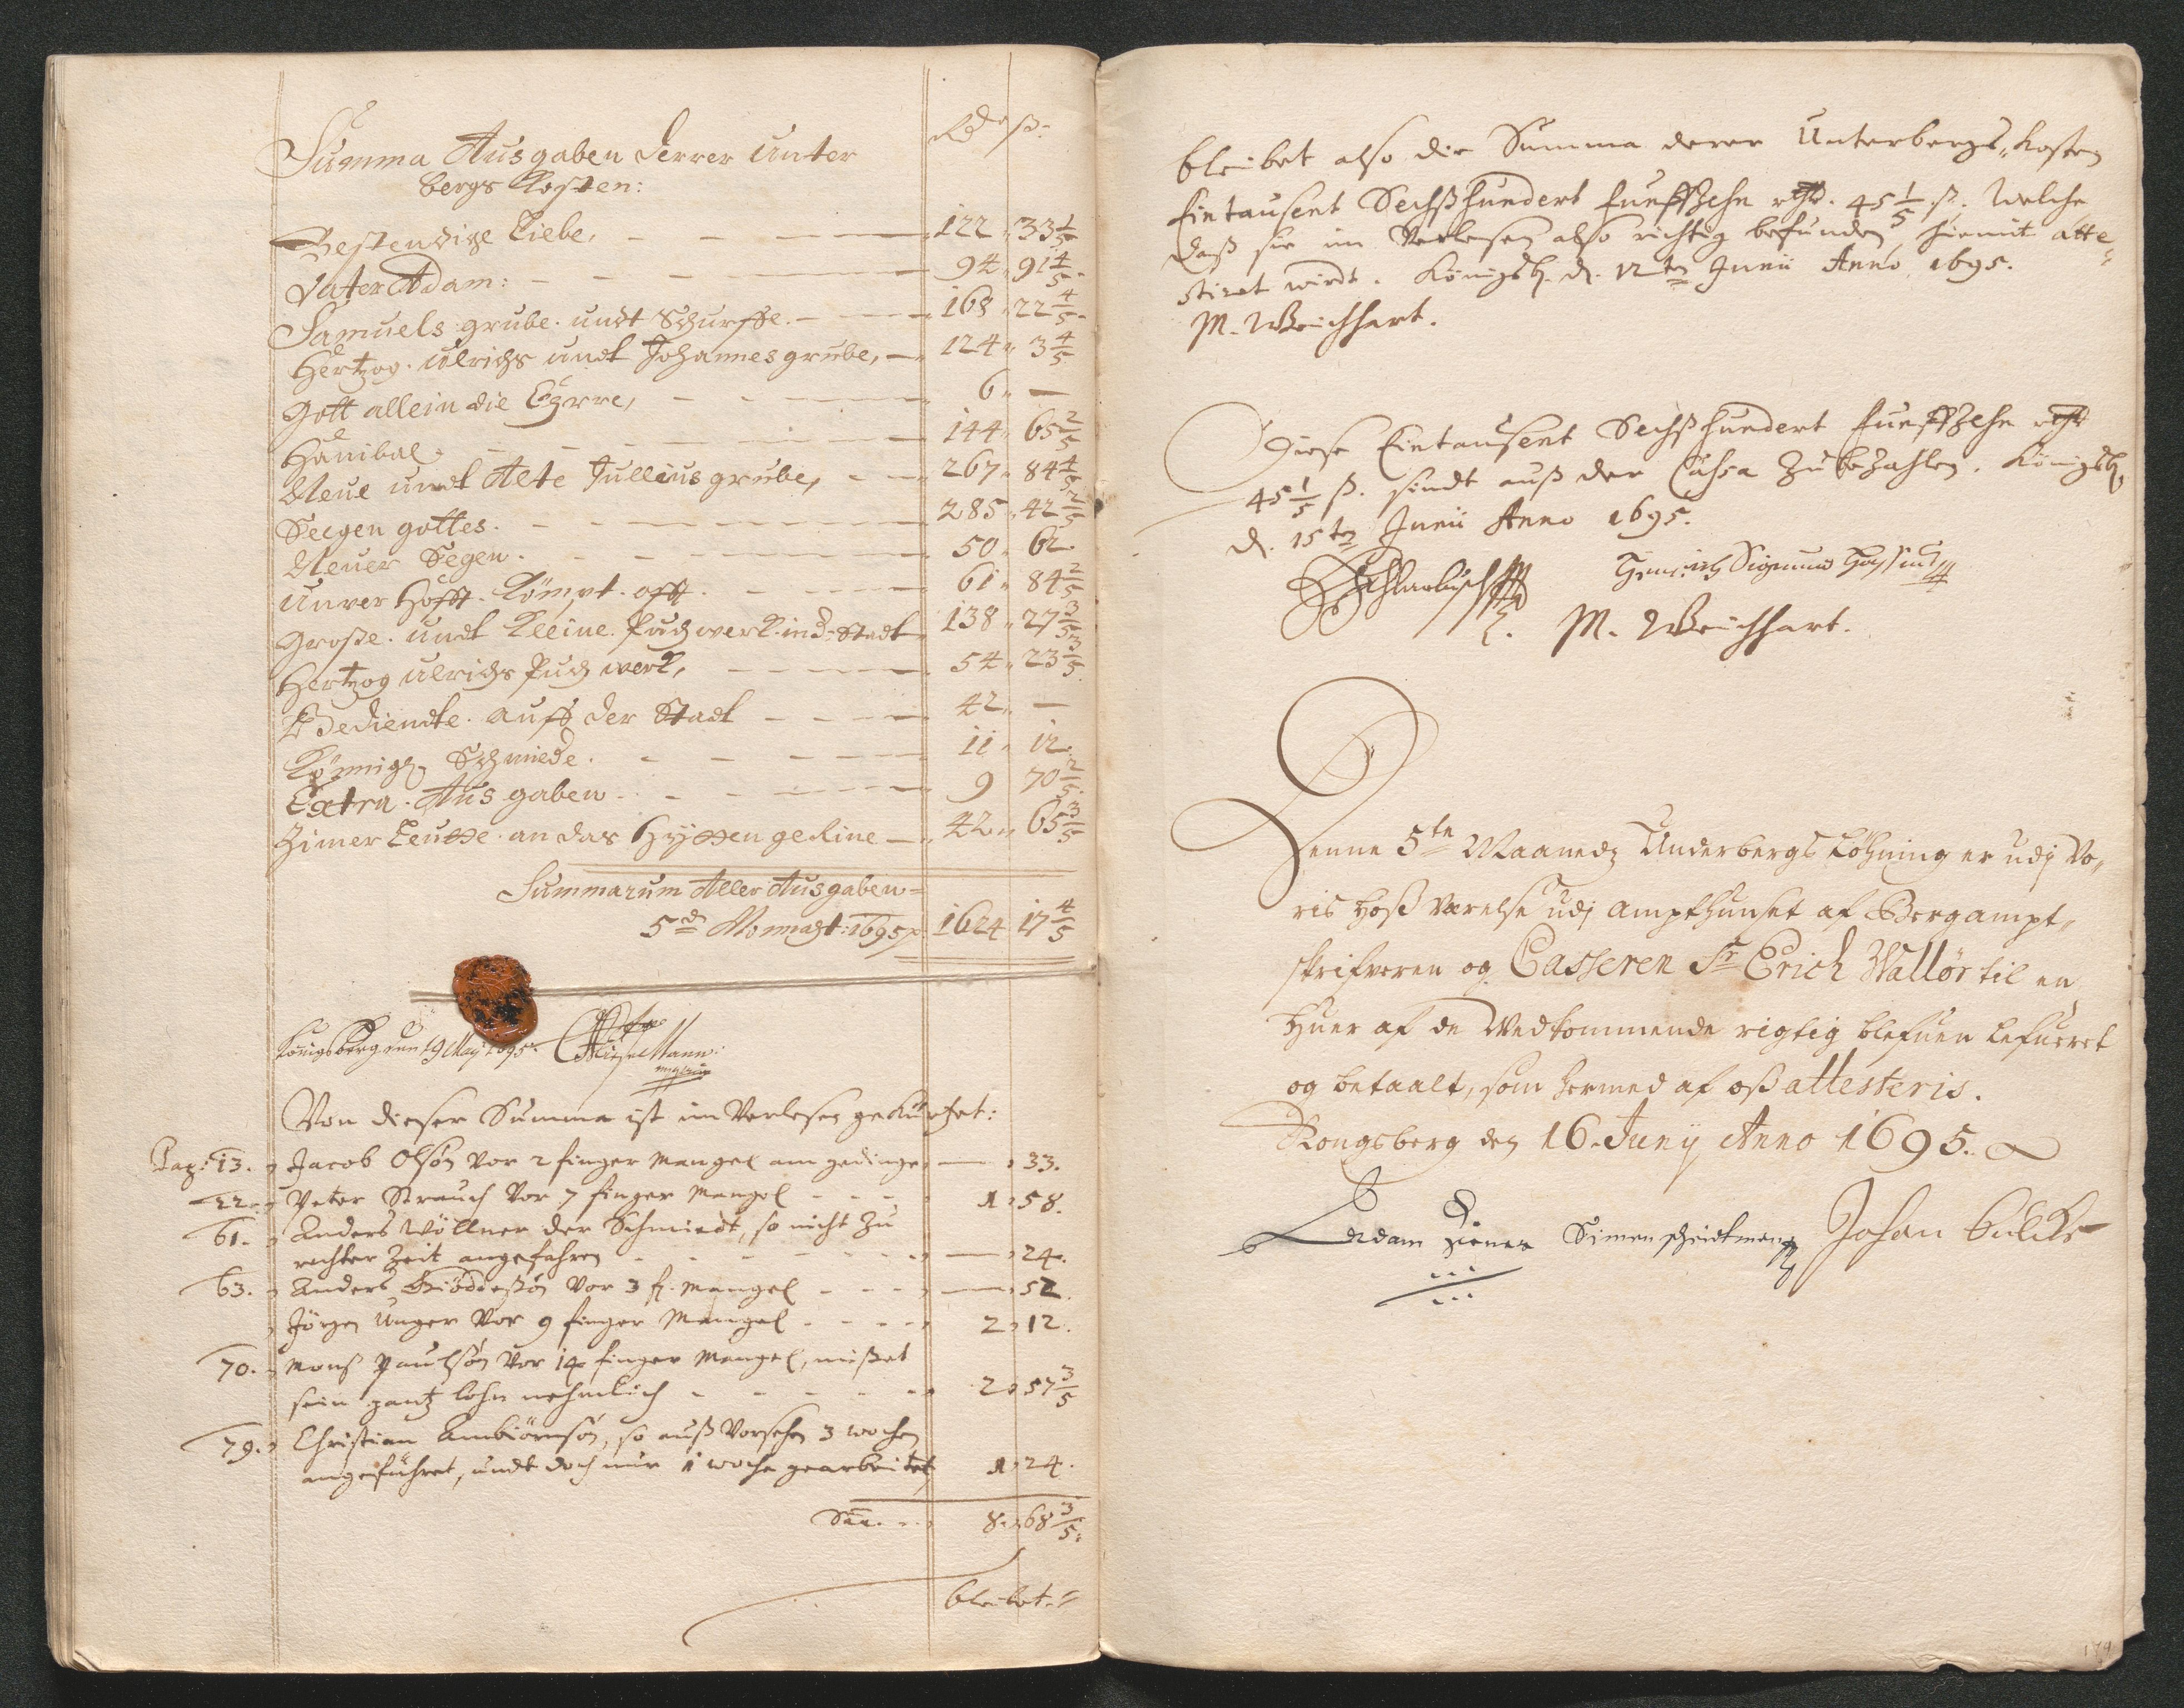 Rd ß.
Summa Ausgaben derrer Unter
bergs Kosten:
Bestendige Liebe, 122 33 1/5
Vater Adam: 94 91 4/5
Samuels grube undt Schurffe. 168 22 4/5
Hertzog Ulrichs undt Johannes grube, 124 3 4/5
Gott allein die Ehrre, 6 —
Hanibal 144 65 2/5
Neue undt Alte Jullius grube, 267 84 4/5
Seegen gottes. 285 42 2/5
Neuer Segen. 50 62
Unver Hofft Kömpt offt. 61 84 2/5
Grosse undt Kleine Puchwerk in d. Stadt 138 27 3/5
Hertzog Ulrichs Puchwerk, 54 23 3/5
Bediendte auff der Stadt 42 —
Königs. Schmiede. 11 12
Extra Ausgaben 9 70 2/5
Zimer Leutte an das Hytten gerine 42 65 3/5
Summarum Aller Ausgaben
5d Monnaht: 1695 1624 17 4/5
Königsberg den 19 Maij 1695.
Von dieser Summa ist im Verlesen gekürtzet:
Pag: 13. Jacob Olsøn vor 2 finger Mangel am gedinge — 33.
22. Peter Strauch vor 7 finger Mangel 1 58.
61. Anders Wöllner der Schmiedt, so nicht zu
rechter Zeit angefahren — 24.
63. Anders vor 3 f. Mangel — 52.
Jörgen Unger vor 9 finger Mangel 2 12.
70. Monß Paulsøn vor 14 finger Mangel, misset
sein gantz lohn nehmlich 2 57 3/5
79. Christian Ambiörnsøn, so auß Versehen 3 wochen
angeführet, undt doch nur 1 woche gearbeitet 1 24.
Sūa. 8 68 3/5
bleibet
bleibet also die Summa derer Unterbergs-Kosten
Eintausent Sechßhundert Funffzehn rthl. 45 1/5 ß. Welche
daß sie im Verlesen also richtig befunden, hiemit atte-
stiret wirdt. Königsb. d. 12ten Junii Anno 1695.
M. Weichhart.
Diese Eintausent Sechßhundert Funffzehn rthl
45 1/5 ß. sindt auß der Cassa zu bezahlen. Königsb.
d. 15ten Junii Anno 1695.
Schlanbusch Heinrich Sigmund
M. Weichhart.
Denne 5te Maanedz Underbergs Løhning er udj vo-
ris Hoß Værelse udj Ampthuuset af Bergampt-
skrifveren og Casseren Sr Erich Walløs til en
Huer af de Wedkommende rigtig blefuen lefueret
og betaalt, som hermed af oß attesteris.
Kongsberg den 16. Junij Anno 1695.
Adam Simen Johan